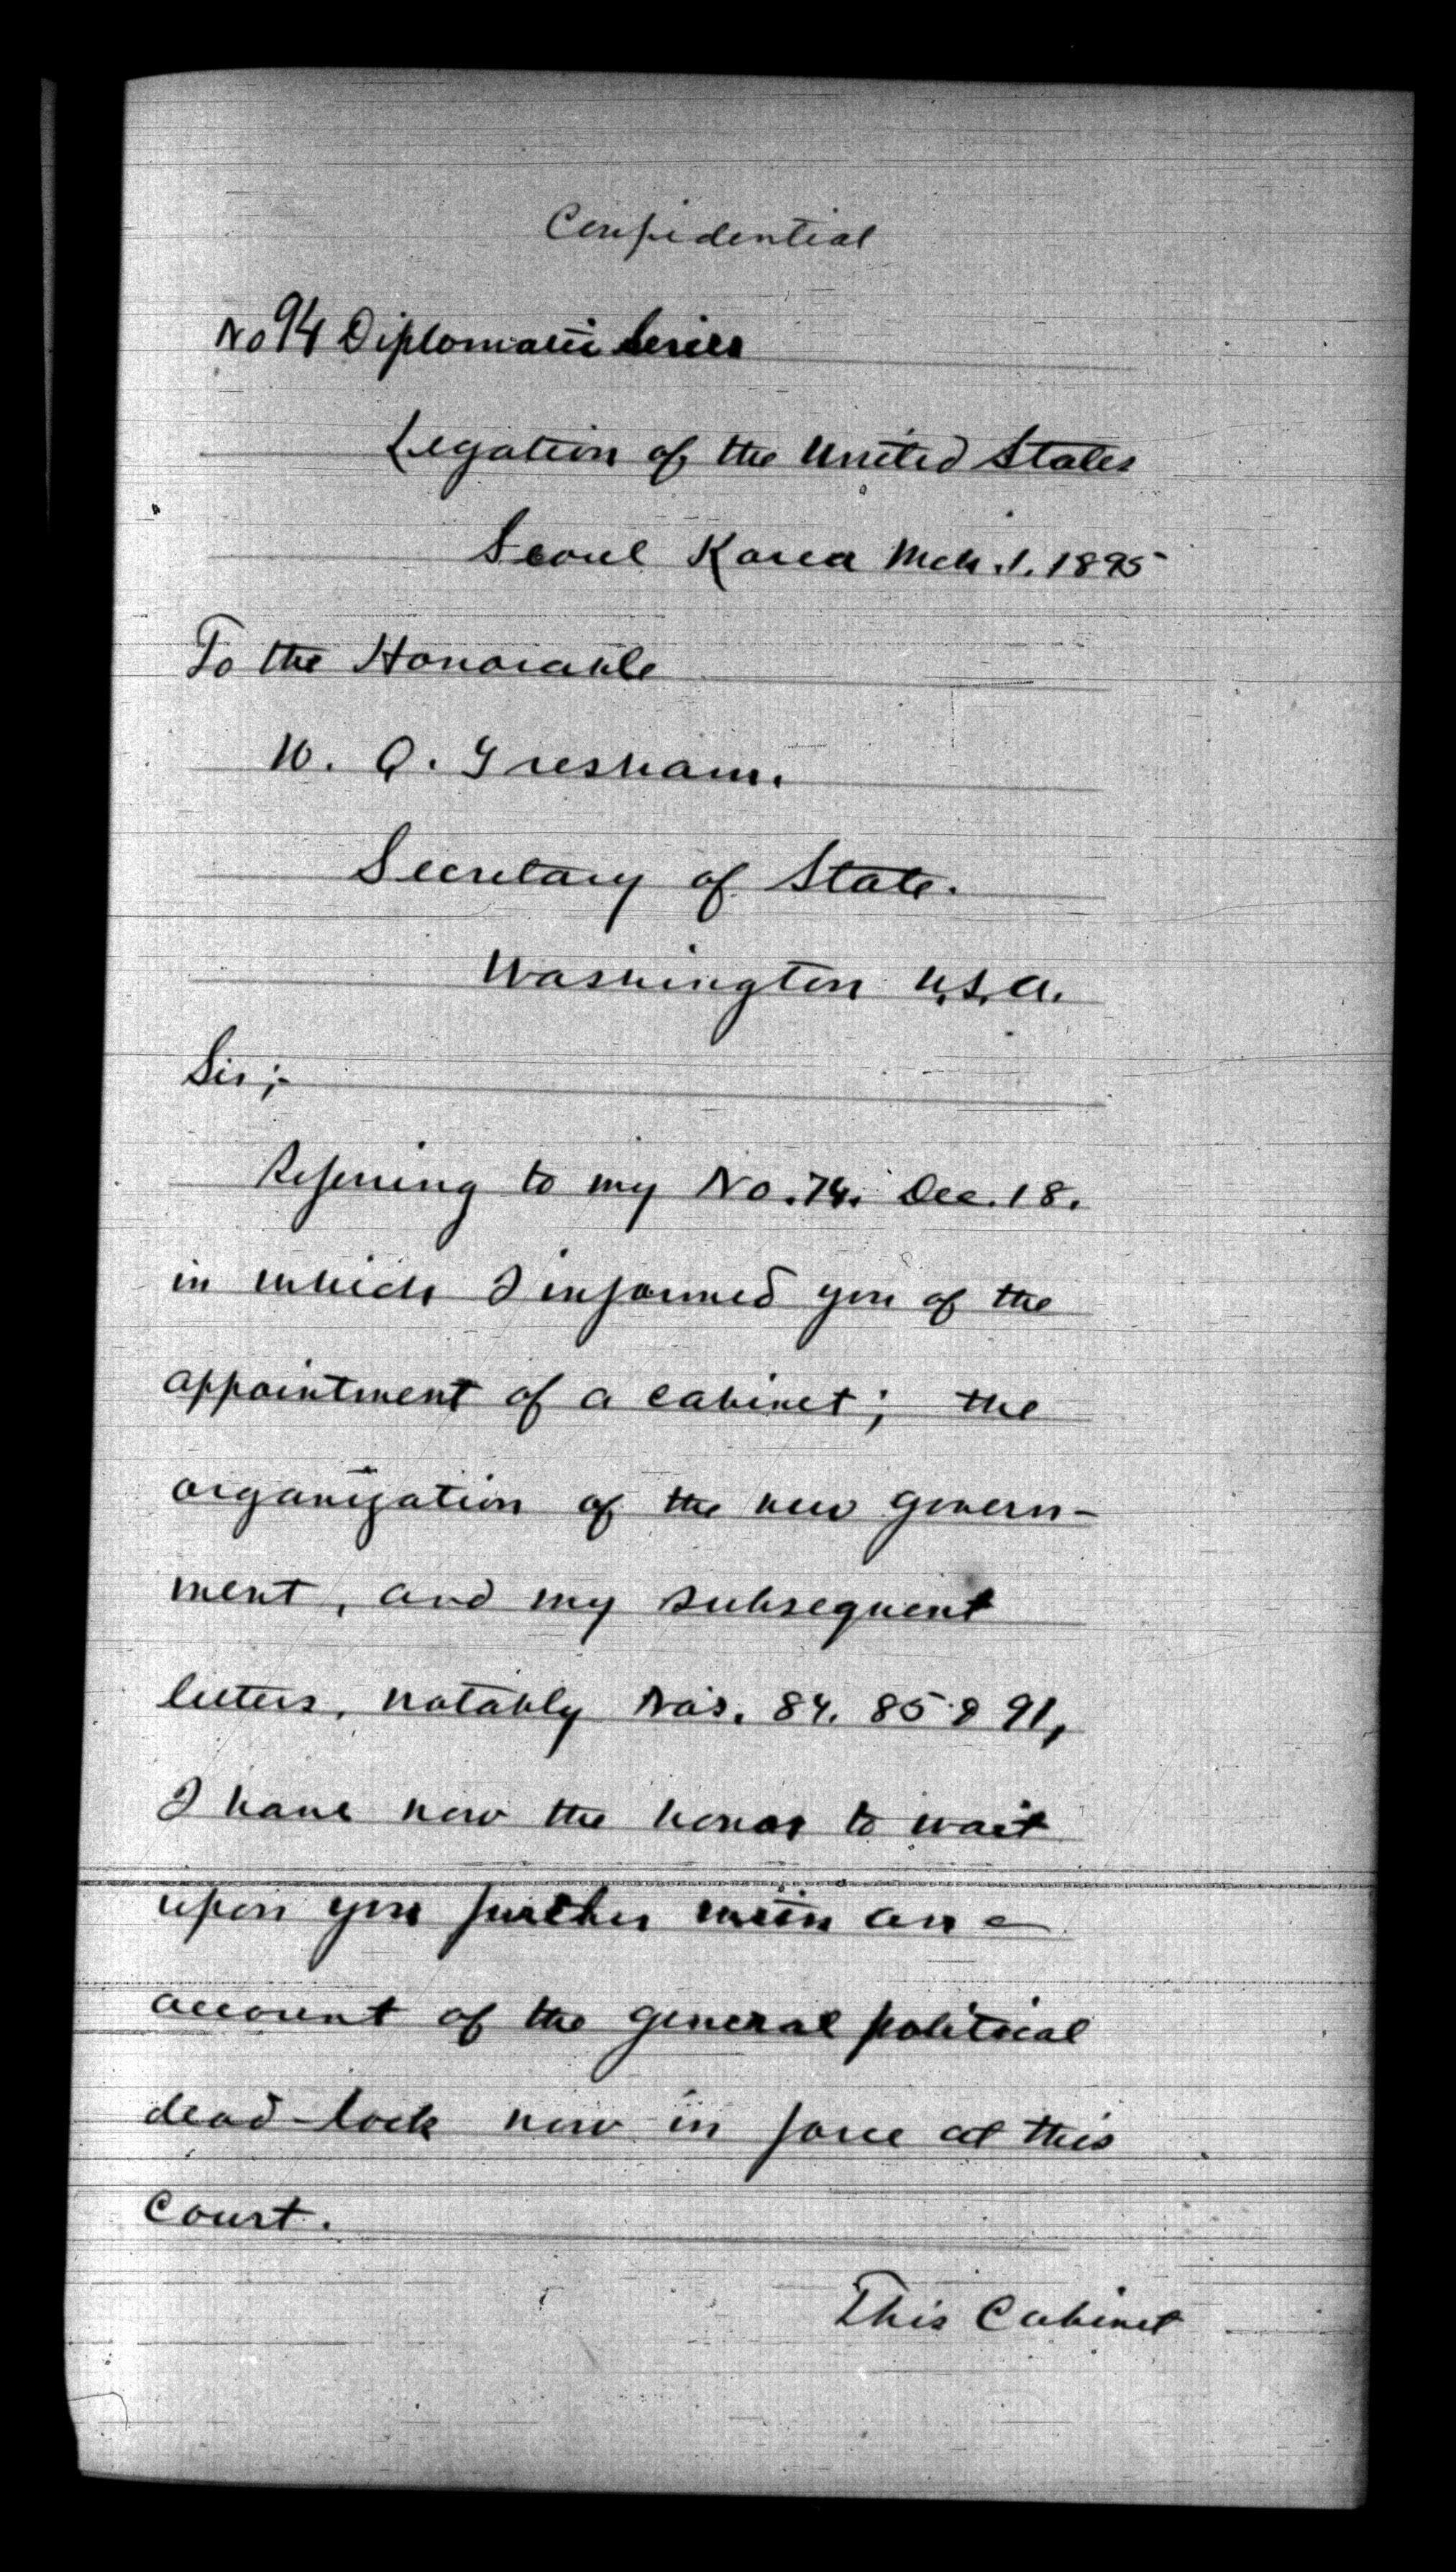 Confidential
No 94 Diplomatic Series
Legation of the United States
Seoul Korea Mch. 1. 1895
To the Honorable
W. Q. Gresham.
Secretary of State.
Washington U.S.A.
Sir;-
Referring to my No. 74. Dec. 18.
in which I informed you of the
appointment of a cabinet; the
organization of the new govern-
ment, and my subsequent
letters, notably No's. 84. 85 & 91,
I have now the honor to wait
upon you further with an
account of the general political
dead-lock now in force at this
Court.
This Cabinet